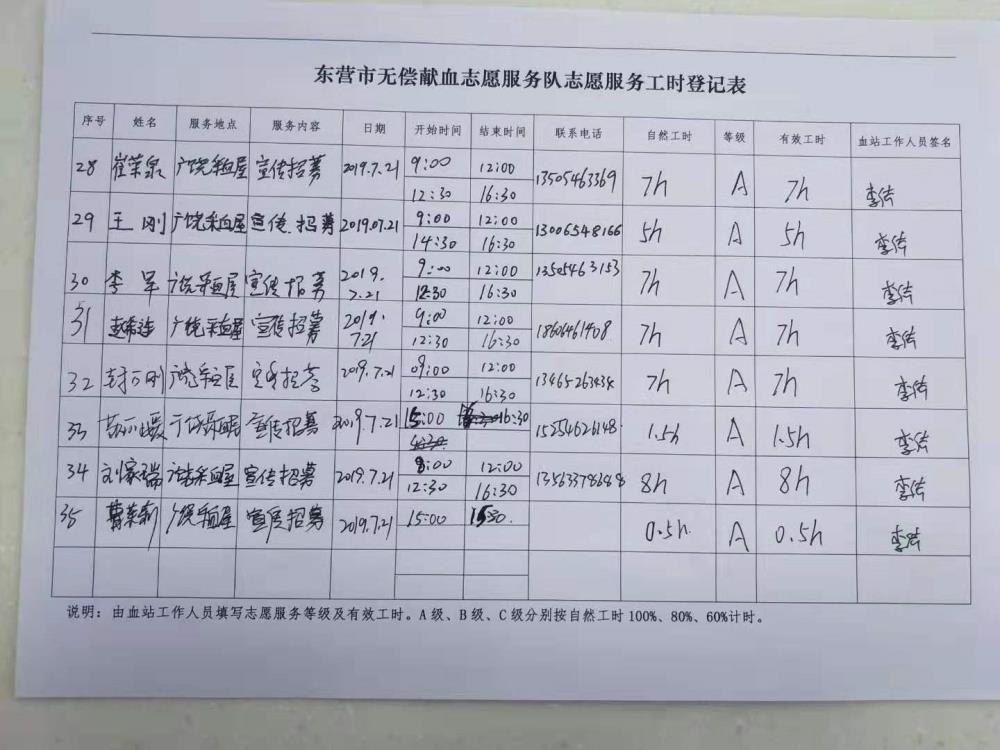 东营市无偿献血志愿服务队志愿服务工时登记表
序号 姓名 服务地点 服务内容 日期 开始时间 结束时间 联系电话 自然工时 等级 有效工时 血站工作人员签名
28 崔荣泉 广饶采血屋 宣传招募 2019.7.21 9:00 12:00 13505463369 7h A 7h
12:30 16:30
29 王刚 广饶采血屋 宣传.招募 2019.07.21 9:00 12:00 13006548166 5h A 5h
14:30 16:30
30 李军 广饶采血屋 宣传招募 2019.7.21 9:00 12:00 13505463153 7h A 7h
12:30 16:30
31 广饶采血屋 宣传招募 2019.7.21 9:00 12:00 18606461408 7h A 7h
12:30 16:30
32 2019.7.21 09:00 12:00 13465263434 7h A 7h
12:30 16:30
33 宣传招募 2019.7.21 15:00 16:30 1.5h A 1.5h
34 刘家瑞 广饶采血屋 宣传招募 2019.7.21 8:00 12:00 13563378648 8h A 8h
12:30 16:30
35 广饶采血屋 宣传招募 2019.7.21 15:00 0.5h A 0.5h
说明：由血站工作人员填写志愿服务等级及有效工时。A级、B级、C级分别按自然工时100%、80%、60%计时。